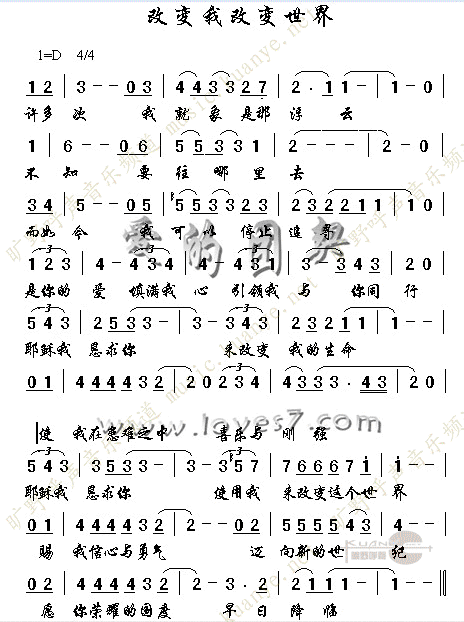 改变我改变世界
1=D 4/4
1 2 | 3 - - 0 3 | 4 4 3 3 2 7 | 2 · 1 1 - | 1 - 0
许多次 我就象是那浮云
1 | 6 - - 0 6 | 5 5 3 3 1 | 2 - - - | 2 - -
不知 要往哪里去
3 4 | 5 - - 0 5 | 5 5 3 2 3 | 2 3 2 2 1 1 | 1 0
而如今 我可以停止追寻
1 2 3 | 4 - 4 3 4 | 4 - 4 3 1 | 3 - 3 4 3 | 2 0
是你的爱 填满我心 引领我与 你同行
5 4 3 | 2 5 3 3 - | 3 - - 3 4 3 | 2 3 2 1 1 | 1 - -
耶稣我恳求你 来改变 我的生命
0 1 | 4 4 4 4 3 2 | 2 - 2 0 2 3 4 | 4 3 3 · 4 3 | 2 0
使 我在患难之中 喜乐与刚强
5 4 3 | 3 5 3 3 - | 3 - 3 2 3 | 7 6 6 6 7 i | i - -
耶稣我恳求你 使用我 来改变这个世界
0 1 | 4 4 4 4 3 2 | 2 - - 0 3 | 5 5 5 5 4 3 | 3 - -
赐 我信心与勇气 迈向新的世纪
0 2 | 4 4 4 4 3 2 | 2 - 3 · 2 | 2 1 1 1 - | 1 - - ‖
愿 你荣耀的国度 早日降临
雲的国奥
www.loyes7.com
旷野呼声音乐频道 music.kuanye.net
KUANYE
旷野呼声